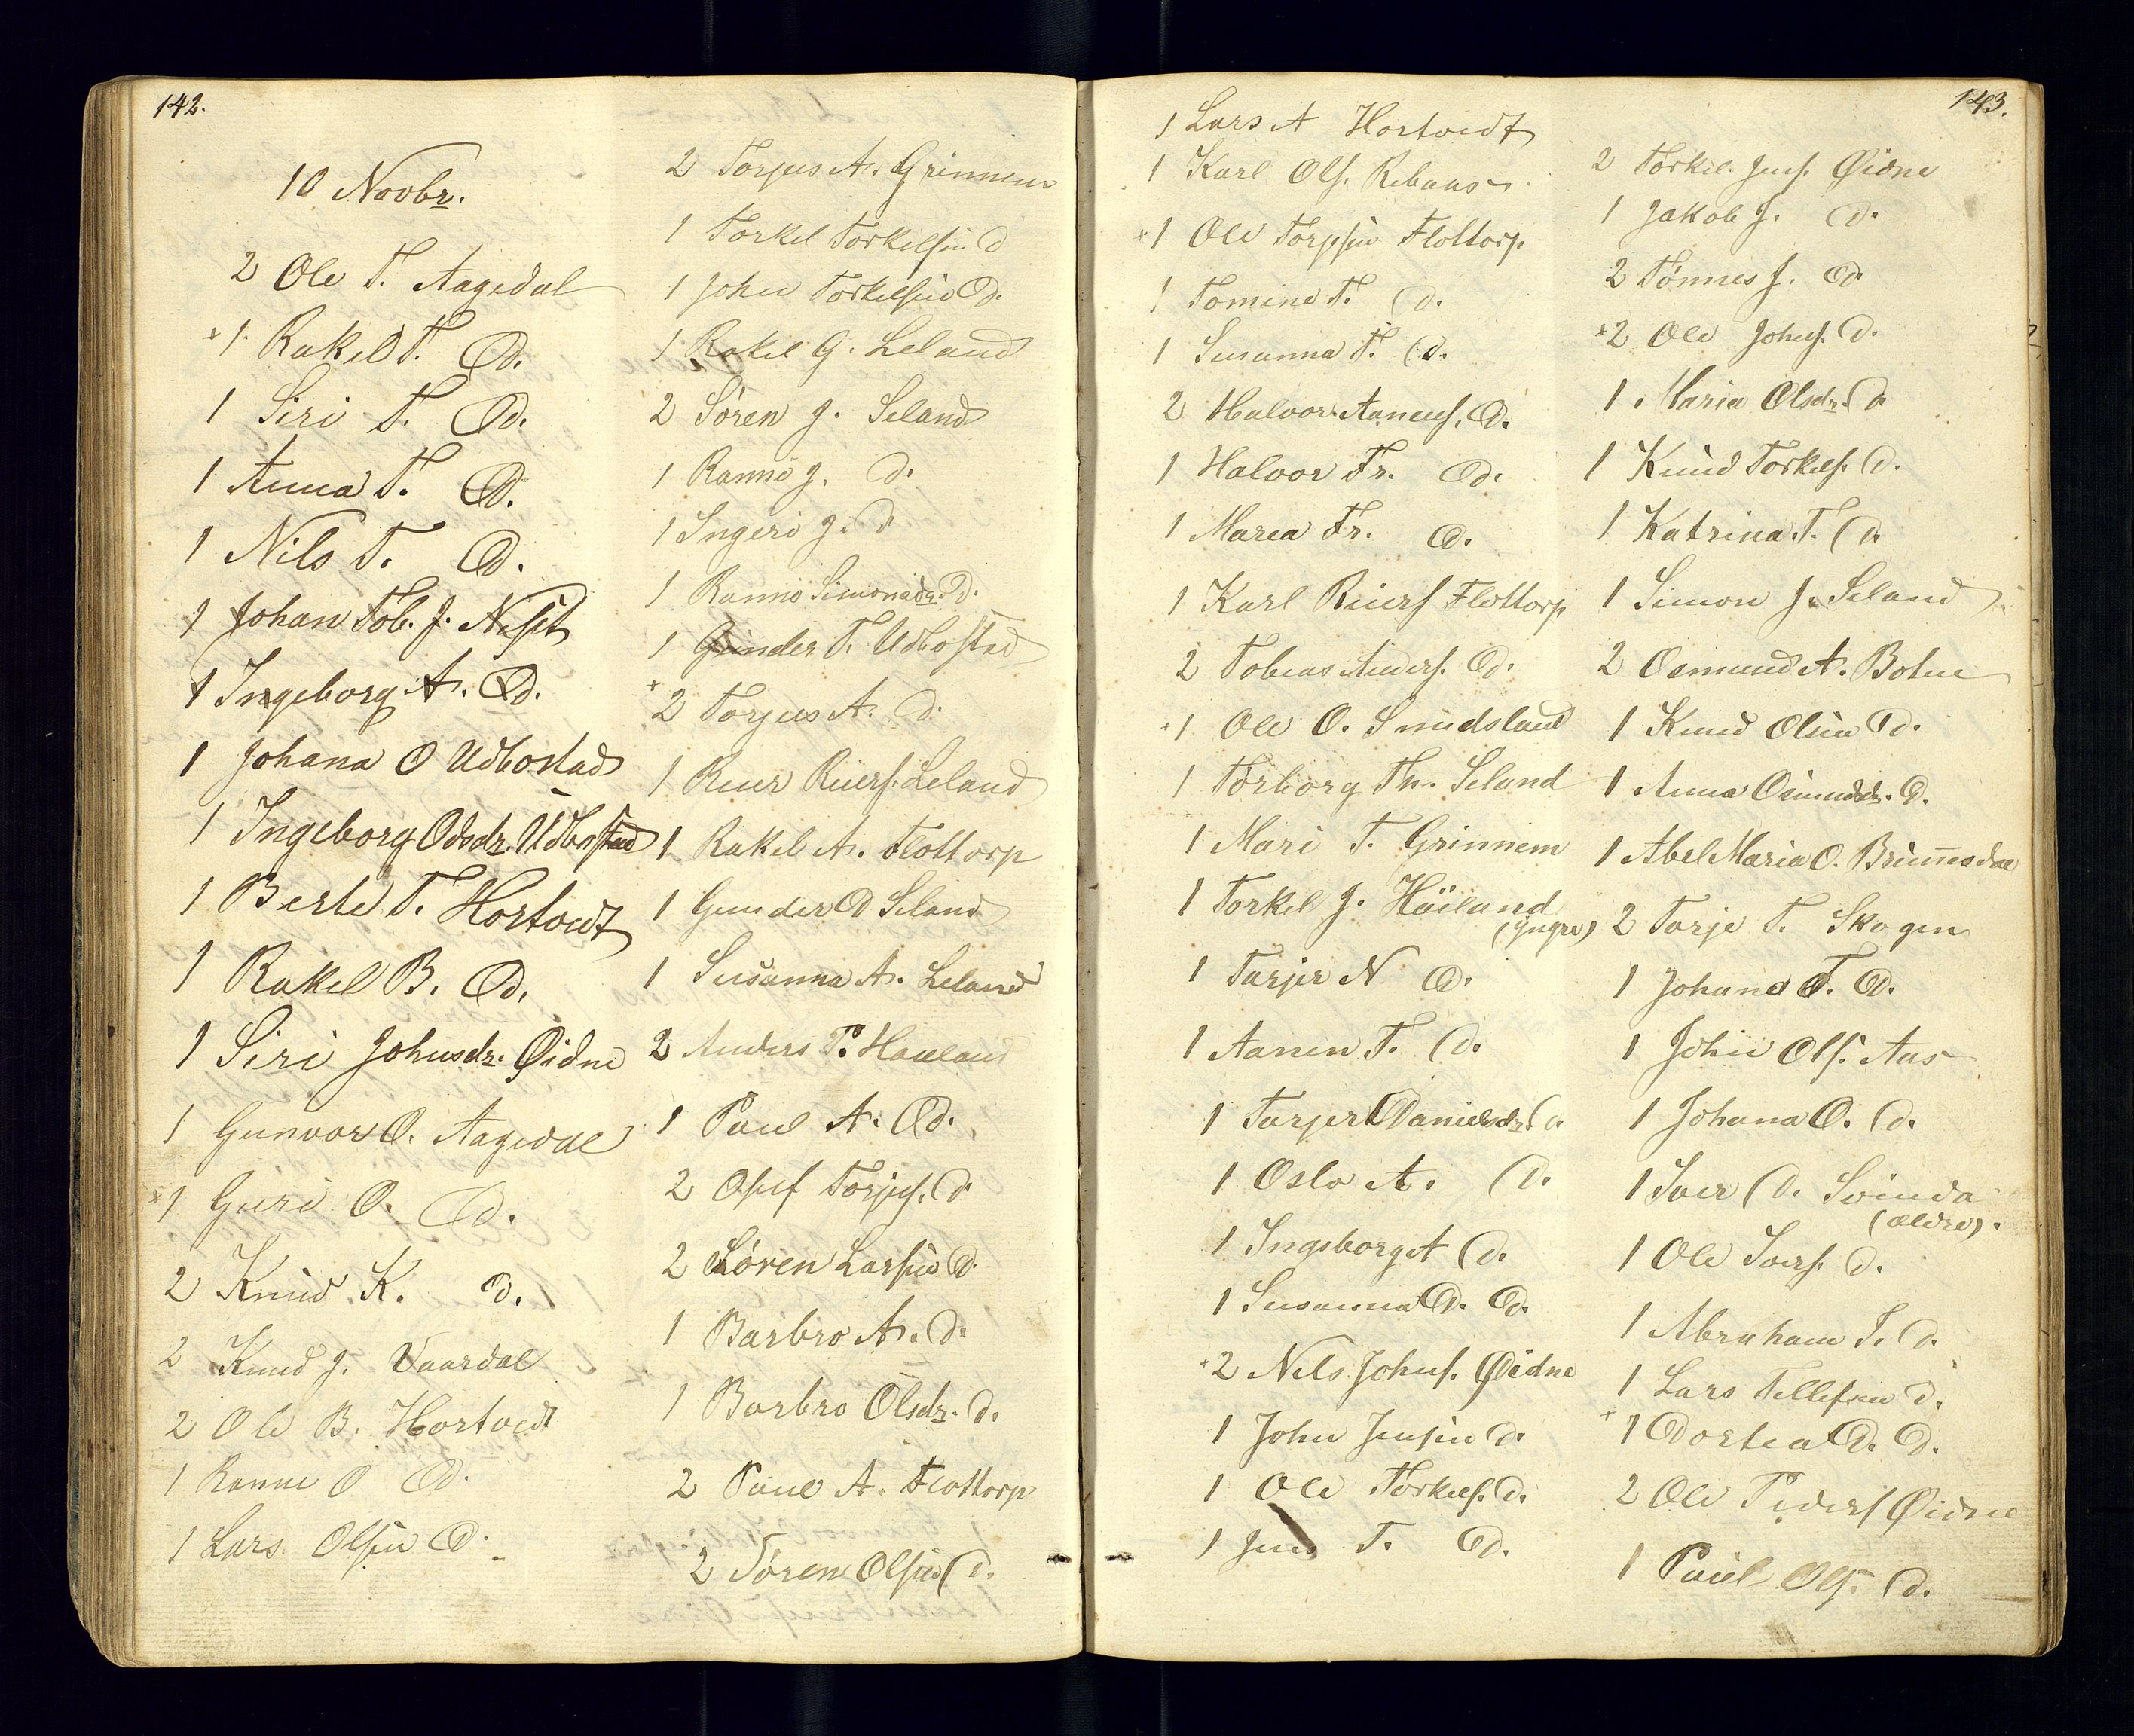 142.
10 Novbr.
2 Ole T. Aagedal
*1 Rakel T. D.
1 Siri T. D.
1 Anna T. D.
1 Nils T. D.
1 Johan Tob. J.
1 Ingeborg A. D.
1 Johana O Udbostad
1 Ingeborg Odsdr. Udbostad
1 Berte T. Hortvedt
1 Rakel B. D.
1 Siri Johnsdr. Øidne
1 Gunvor O. Aagedal
*1 Guri O. D.
2 Knud K. D.
2 Knud J. Vaardal
2 Ole B. Hortvedt
1 Ranne O D.
1 Lars Olsen D.
2 Torjus A. Grinnem
1 Torkel Torkelsen D
1 John Torkelsen D.
1 Rakel G. Leland
2 Sören J. Seland
1 Ranne J. D.
1 Ingeri J. D
1 Ranne Simonsdr. D.
1 Gunder T. Udbostad
*2 Torjus A. D.
1 Reier Reiers. Leland
1 Rakel A. Flottorp
1 Gunder D Seland
1 Susanna A. Leland
2 Anders P. Haaland
1 Paul A. D.
2 Oluf Torjus. D
2 Sören Larsen D.
1 Barbro A. D.
1 Barbro Olsdr. D.
2 Paul A. Flottorp
2 Sören Olsen D.
143.
1 Lars A Hortvedt
1 Karl Ols. Rebaas
*1 Ole Torjsen Flottorp
1 Tomine T. D.
1 Susanna T. D.
2 Halvor Aanens. D.
1 Halvor Fr. D.
1 Marea Fr. D.
1 Karl Reiers Flottorp
2 Tobias Anders. D.
*1 Ole O. Snudsland
1 Torborg Th. Seland
1 Mari T. Grinnem
1 Torkel J. Höiland
(yngre)
1 Tarjer N D.
1 Aanen T. D.
1 Tarjer Danielsdr. D.
1 Oslo A. D.
1 Ingeborg A D.
1 Susanna D. D.
*2 Nels Johns. Øidne
1 John Jensen D.
1 Ole Torkels. D.
1 Jens T. D.
2 Torkel Jens. Øidne
1 Jakob J. D.
2 Tönnes J. D
*2 Ole Johns. D.
1 Maria Olsdr. D
1 Knud Torkels. D.
1 Katrina T. D
1 Simon J. Seland
2 Osmund A. Bohne
1 Knud Olsen D.
1 Anna Osmundsdr. D.
1 Abel Maria O. Brunnesdal
2 Tarje T. Skogen
1 Johane T. D.
1 John Ols. Aas
1 Johana O. D.
1 Iver D. Svinda
(ældre).
1 Ole Ivers. D.
1 Abraham T. D.
1 Lars Tellefsen D.
*1 Dortea D. D.
2 Ole Peders Øidne
1 Paul Ols. D.